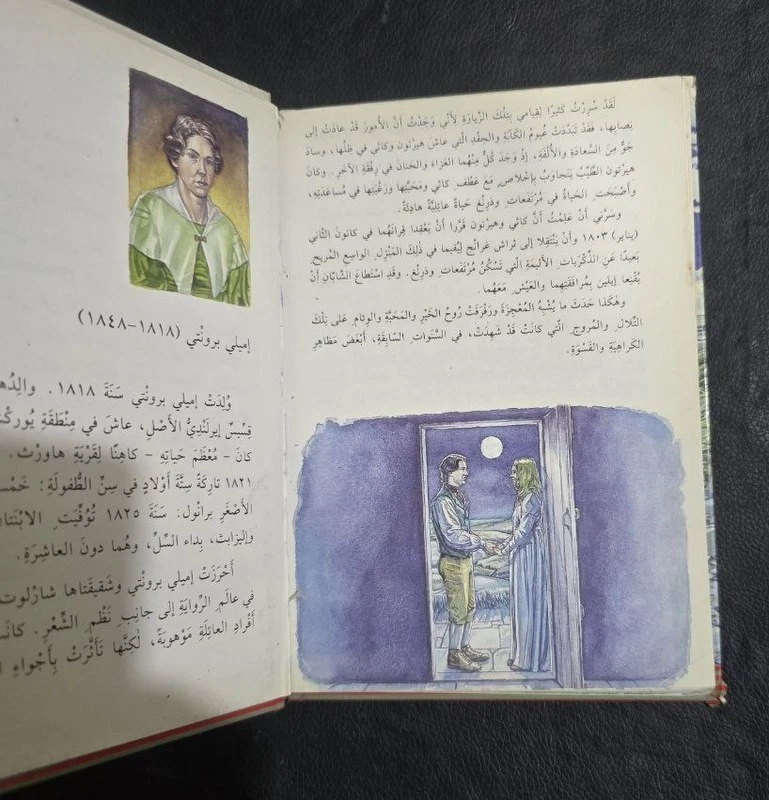 لَقَدْ سُرِرْتُ كَثيرًا لِقِيامي بِتِلْكَ الزِّيارَةِ لِأَنّي وَجَدْتُ أَنَّ الأُمورَ قَدْ عادَتْ إِلى
نِصابِها، فَقَدْ تَبَدَّدَتْ غُيومُ الكَآبَةِ والحِقْدِ الَّتي عاشَ هيرْتون وكاثي في ظِلِّها، وسادَ
جَوٌّ مِنَ السَّعادَةِ والأُلْفَةِ، إِذْ وَجَدَ كُلٌّ مِنْهُما العَزاءَ والحَنانَ في رِفْقَةِ الآخَرِ. وكانَ
هيرْتون الطَّيِّبُ يَتَجاوَبُ بِإِخْلاصٍ مَعَ عَطْفِ كاثي ومَحَبَّتِها ورَغْبَتِها في مُساعَدَتِهِ،
وأَصْبَحَتِ الحَياةُ في مُرْتَفَعاتِ وذِرِنْغ حَياةً عائِلِيَّةً هادِئَةً.
وسَرَّني أَنْ عَلِمْتُ أَنَّ كاثي وهيرْتون قَرَّرا أَنْ يَعْقِدا قِرانَهُما في كانونَ الثّاني
(يناير) ١٨٠٣ وأَنْ يَنْتَقِلا إِلى ثراش غرانج لِيُقيما في ذٰلِكَ المَنْزِلِ الواسِعِ المُريحِ،
بَعيدًا عَنِ الذِّكْرَياتِ الأَليمَةِ الَّتي تَسْكُنُ مُرْتَفَعاتِ وذِرِنْغ. وقَدِ اسْتَطاعَ الشّابّانِ أَنْ
يُقْنِعا إيلين بِمُرافَقَتِهِما والعَيْشِ مَعَهُما.
وهٰكَذا حَدَثَ ما يُشْبِهُ المُعْجِزَةَ ورَفْرَفَتْ روحُ الخَيْرِ والمَحَبَّةِ والوِئامِ عَلى تِلْكَ
التِّلالِ والمُروجِ الَّتي كانَتْ قَدْ شَهِدَتْ، في السَّنَواتِ السّابِقَةِ، أَبْغَضَ مَظاهِرِ
الكَراهِيَةِ والقَسْوَةِ.
إميلي برونْتي (١٨١٨-١٨٤٨)
وُلِدَتْ إميلي برونْتي سَنَةَ ١٨١٨. والِدُها
قِسّيسٌ إيرلَنْدِيُّ الأَصْلِ، عاشَ في مِنْطَقَةِ
كانَ - مُعْظَمَ حَياتِهِ - كاهِنًا لِقَرْيَةِ هاورْث.
١٨٢١ تارِكَةً سِتَّةَ أَوْلادٍ في سِنِّ الطُّفولَةِ:
الأَصْغَرِ برانْول. سَنَةَ ١٨٢٥ تُوُفِّيَتِ
وإليزابث، بِداءِ السِّلِّ، وهُما دونَ العاشِرَةِ.
أَحْرَزَتْ إميلي برونْتي وشَقيقَتاها شارْلوت
في عالَمِ الرِّوايَةِ إِلى جانِبِ نَظْمِ الشِّعْرِ.
أَفْرادِ العائِلَةِ مَوْهوبَةً، لٰكِنَّها تَأَثَّرَتْ بِأَجْواءِ